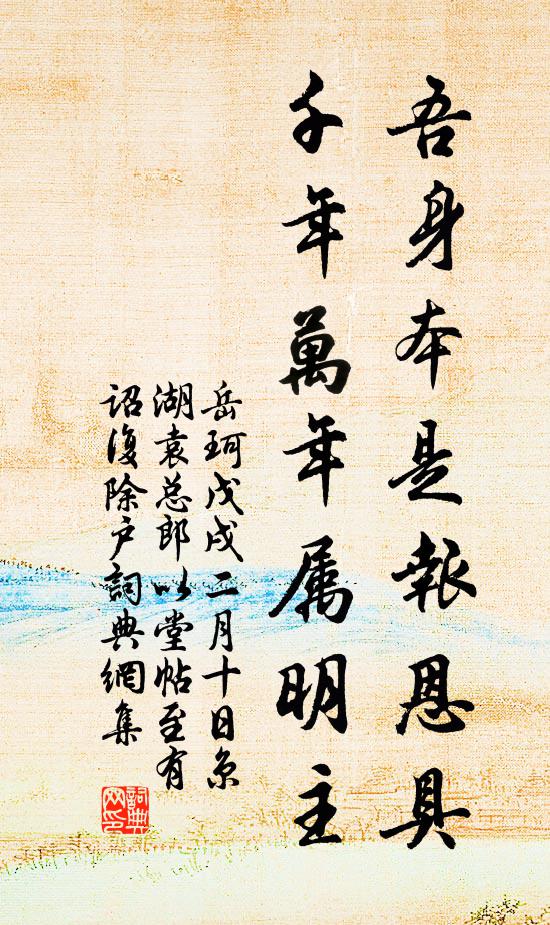 吾身本是報恩具
千年萬年属明主
岳珂戊戌二月十日京
湖袁总郎以堂帖至有
詔復除户詞典網集
詞典网印